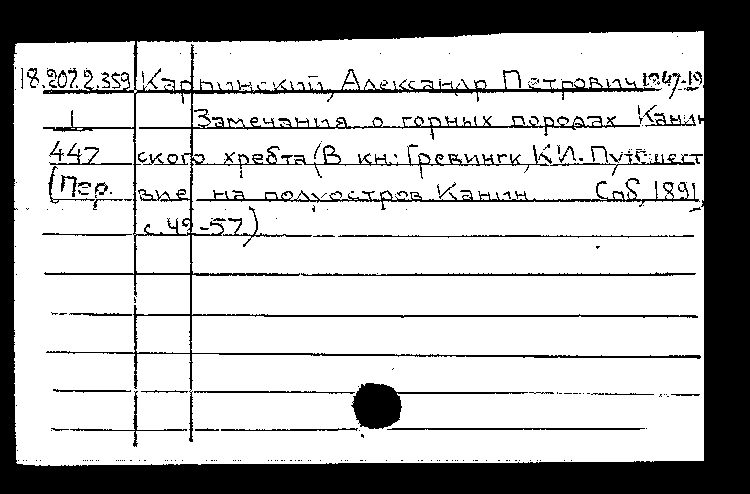 18.207.2.359 Карпинский, Александр Петрович 1847-19
1 Замечания о горных породах Канин
447 ского хребта (В кн: Гревингк, К.И. Путешест
(Пер. вие на полуостров Канин. Спб, 1891,
с. 49-57)